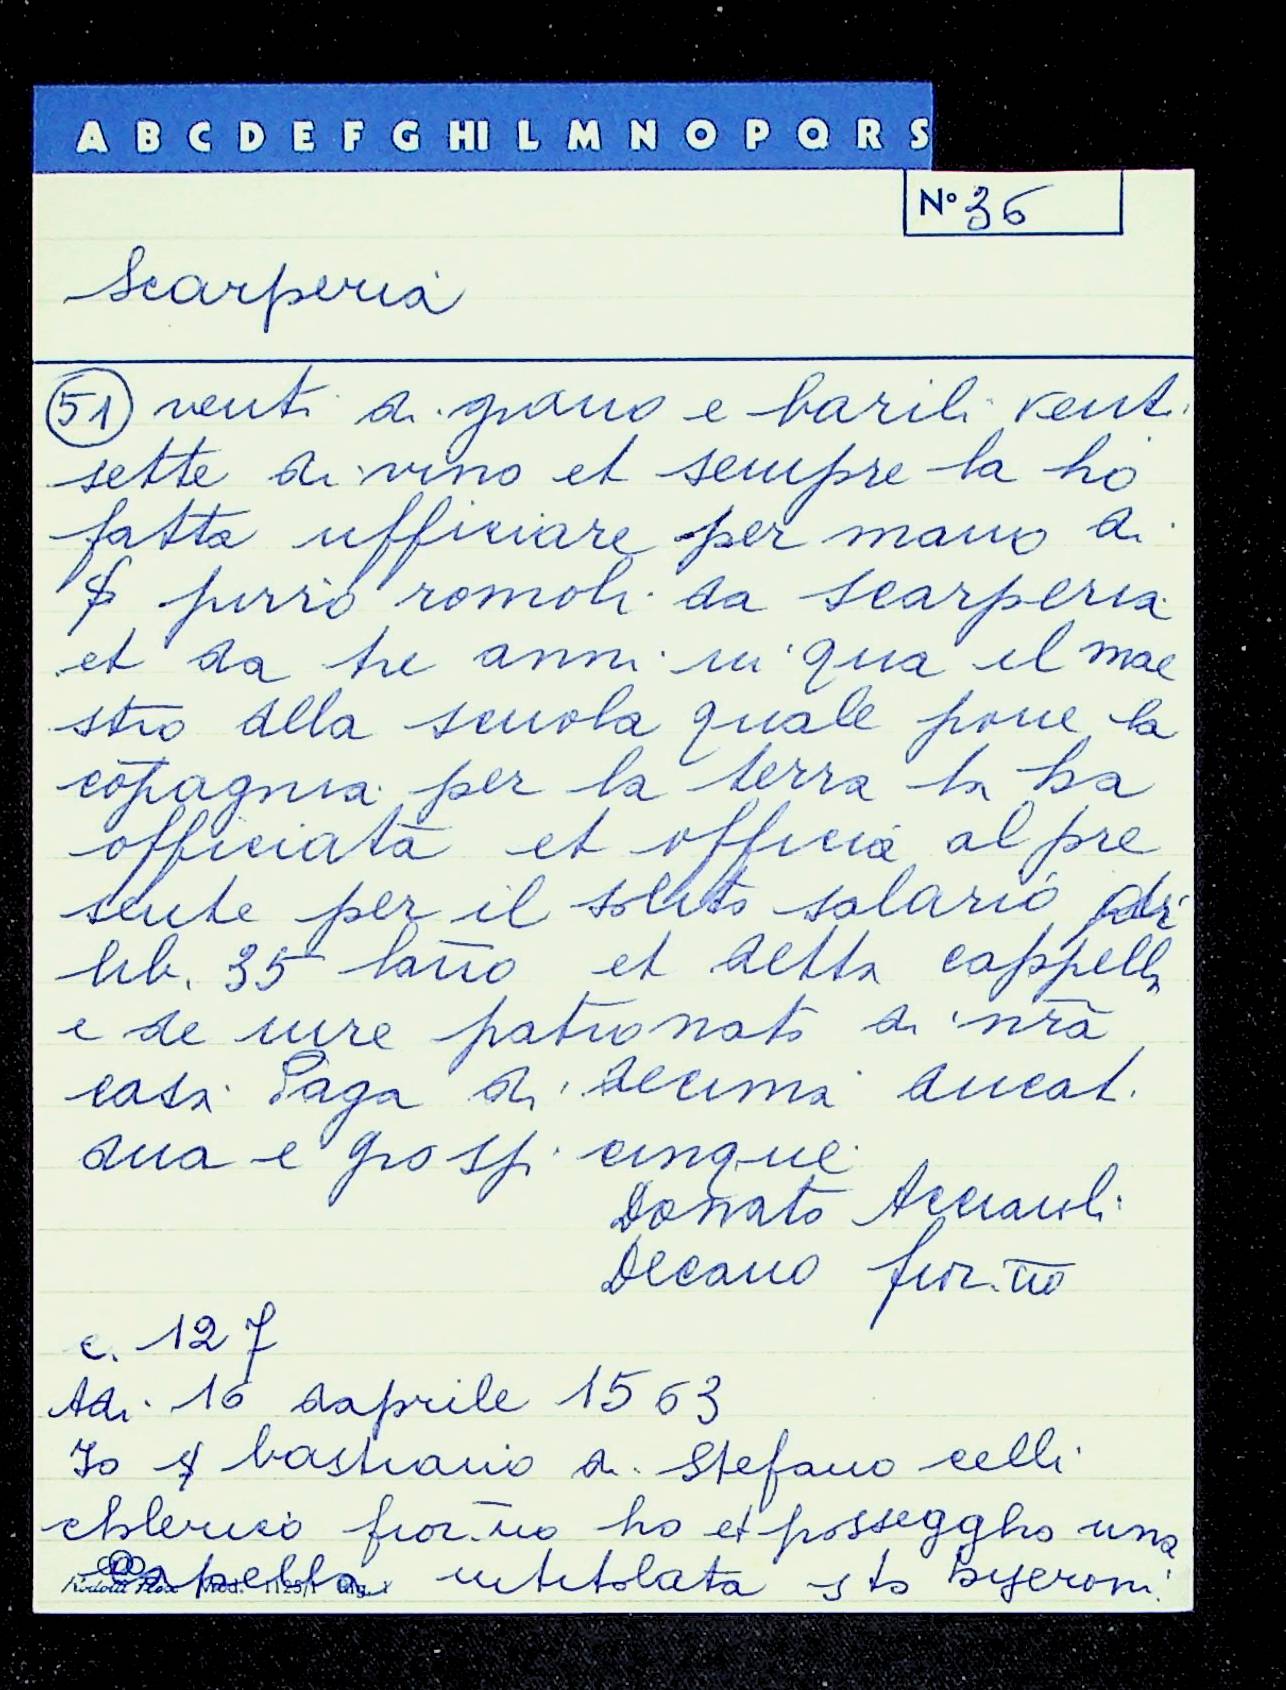 A B C D E F G HI L M N O P Q R S
N° 36
Scarperia
51 venti di grano e barili venti
sette di vino et sempre la ho
fatta ufficiare per mano di
pirro romoli da Scarperia
et da tre anni in qua il mae
stro della scuola quale pone la
cōpagnia per la terra la ha
officiata et officia al pre
sente per il solito salario di
lib. 35 lāno et detta cappella
e de iure patronato di nr̄a
casa. Paga di decima ducat.
dua e grossi cinque
Donato Acciaioli
Decano fior.no
c. 127
Adi 16 daprile 1563
Io bastiano di Stefano celli
chlerico fior.no ho et posseggho una
capella intitolata sto